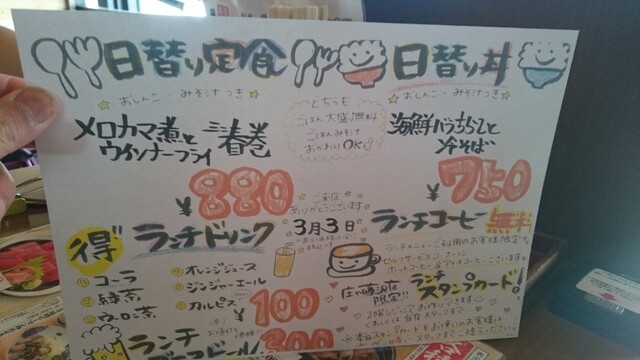 日替り定食
おしんこ・みそ汁つき
メロカマ煮と
ウインナーフライ
春巻
¥880
どちらも
ごはん大盛り無料
ごはんみそ汁
おかわりOK
日替り丼
おしんこ・みそ汁つき
海鮮バラちらしと
冷そば
¥750
ご来店
ありがとうございます
3月3日
得
ランチドリンク
コーラ
緑茶
ウーロン茶
オレンジジュース
ジンジャーエール
カルピス
¥100
ランチコーヒー無料
ランチメニューご利用のお客様限定
セルフサービスコーナーに
ホットコーヒー&アイスコーヒーございます
庄や藤沢店
限定!!
ランチ
スタンプカード!
ランチ
300